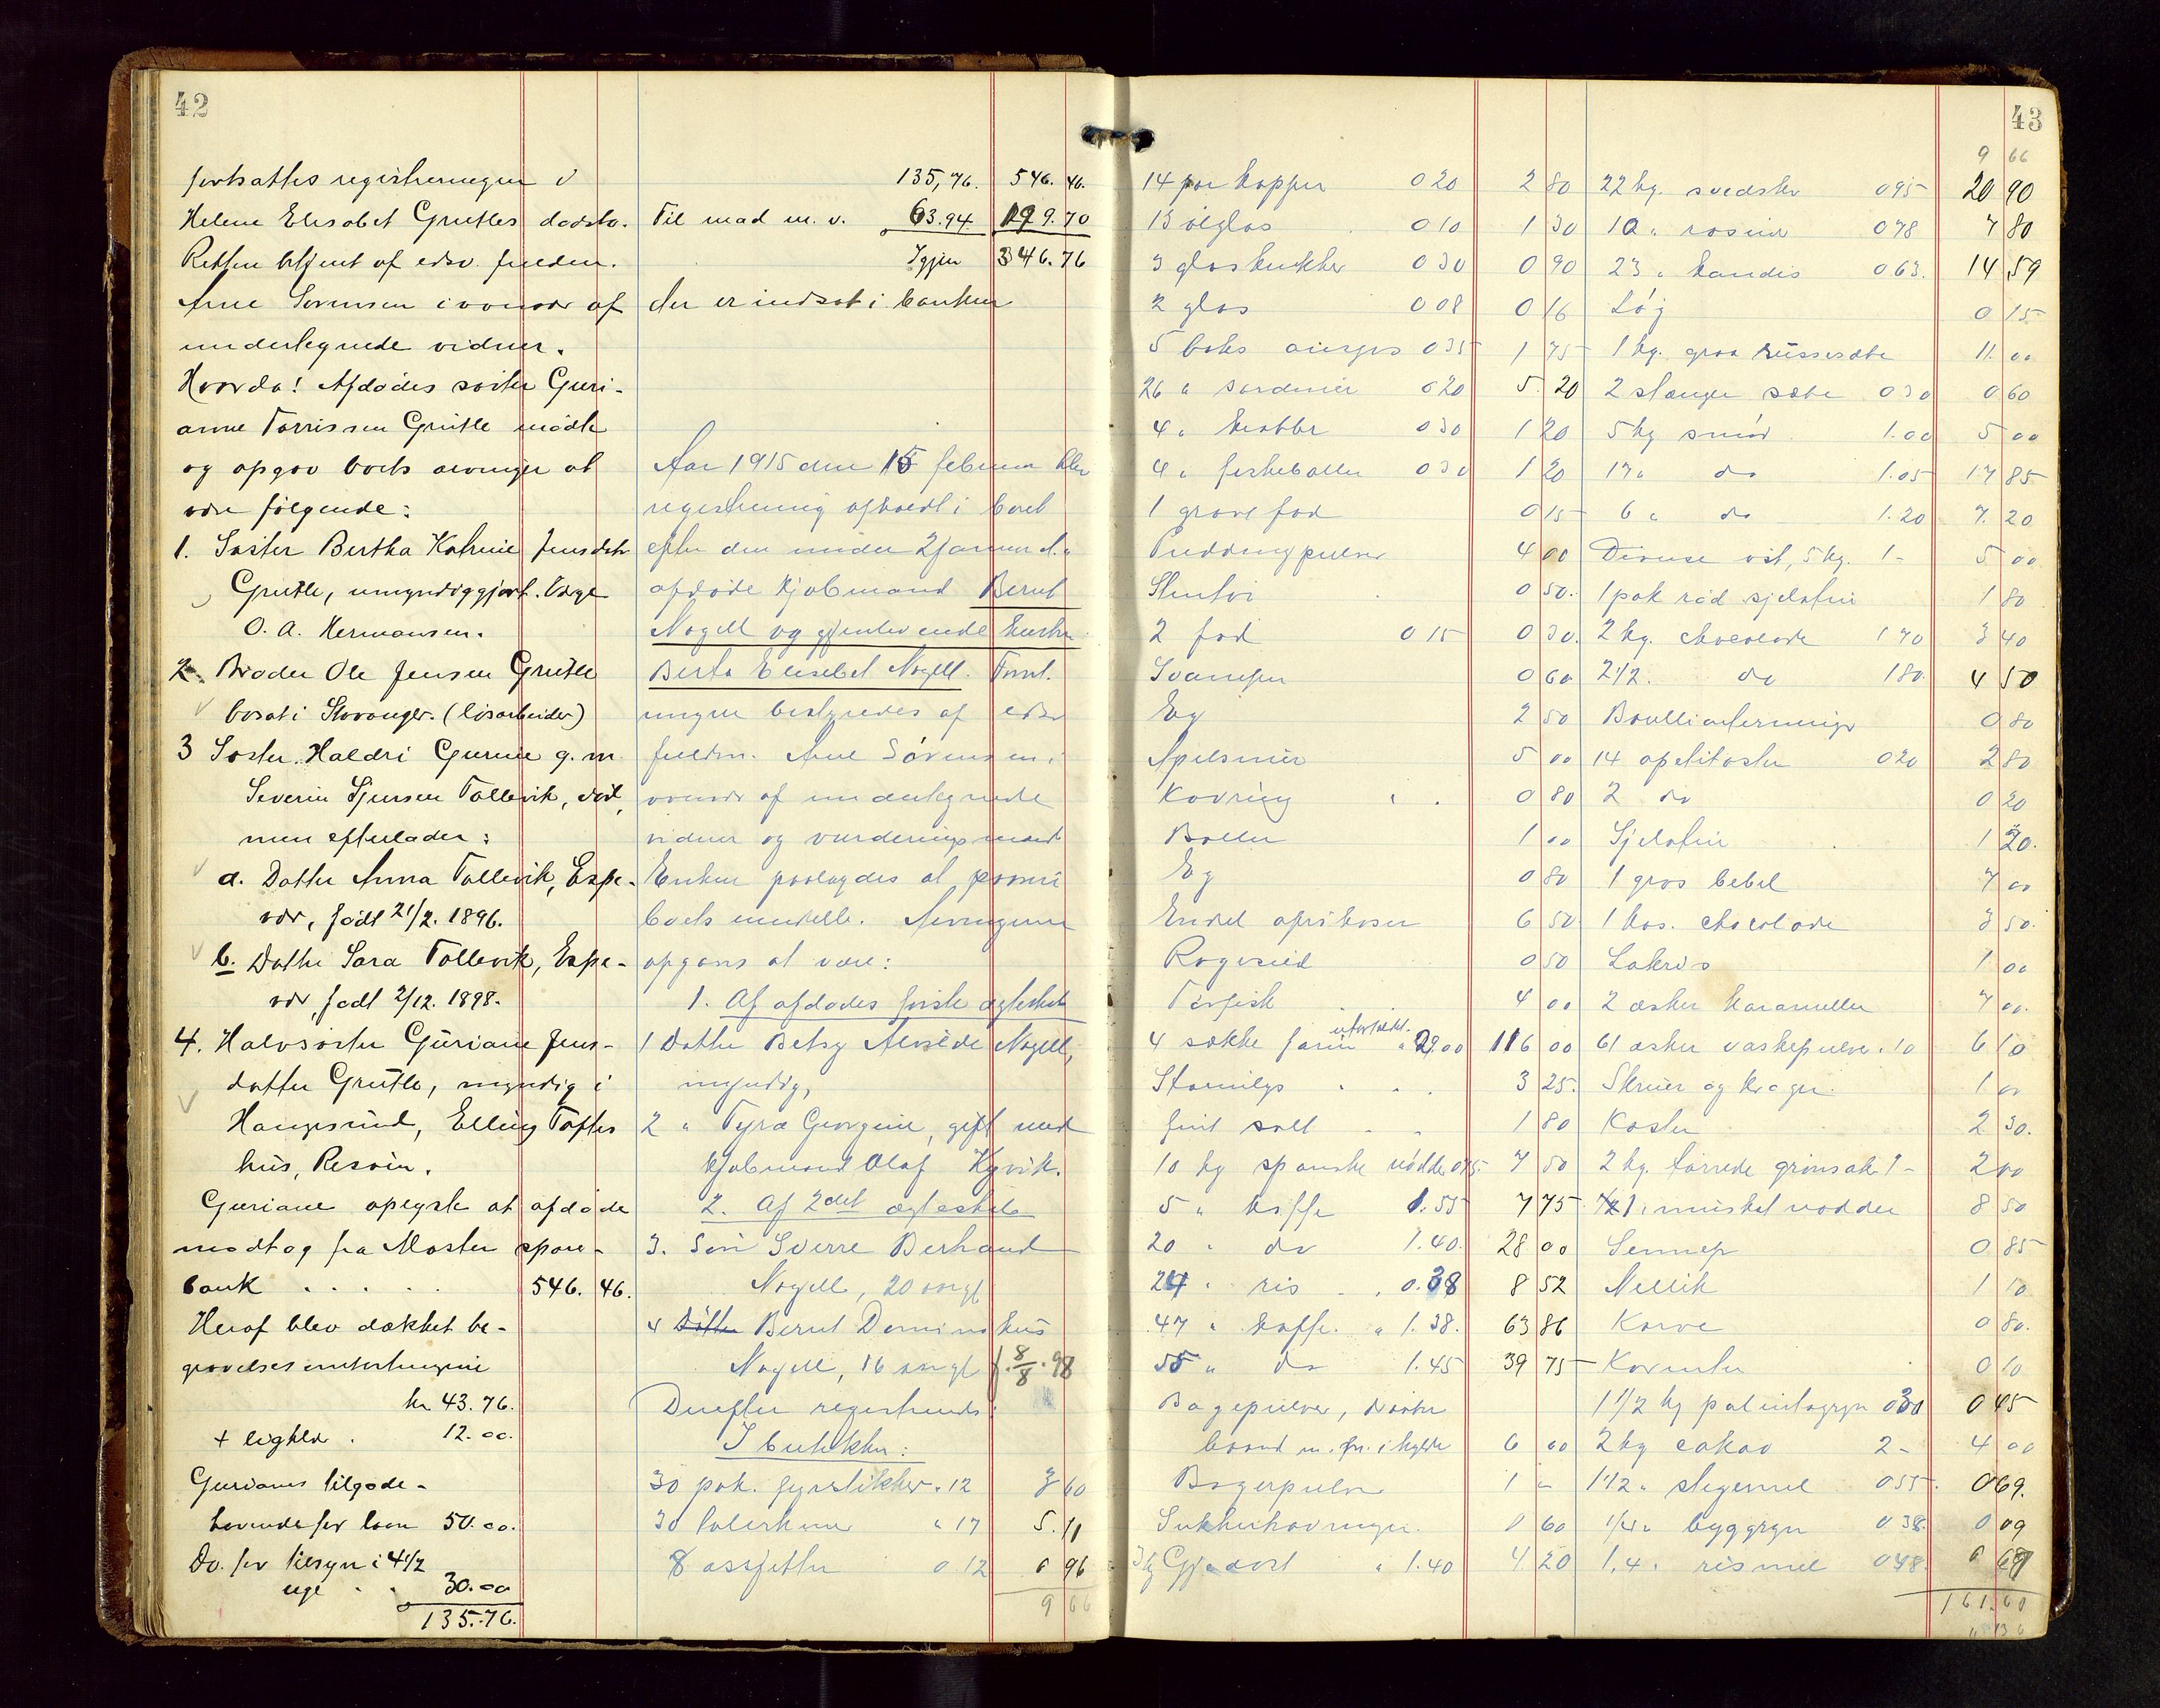 42
fortsattes registreringen i
Helene Elisabet Grutles dødsbo.
Retten betjent af edsv. fuldm.
Arne Sørensen i overvær af
undertegnede vidner.
Hvorda! Afdødes søster Guri-
anne Tørrissen Grutle mødte
og opgav boets arvinger at
være følgende:
1. Søster Bertha Katrine Jensdtr
Grutle, umyndiggjort. Værge
O. A. Hermansen.
2. Broder Ole Jensen Grutle
bosat i Stavanger. (løsarbeider)
3 Søster Haldri Gurine g. m.
Severin Sjursen Tollevik, død,
men efterlader:
a. Datter Anna Tollevik, Espe-
vær, født 21/2. 1896.
b. Datter Sara Tollevik, Espe-
vær, født 2/12. 1898.
4. Halvsøster Guriane Jens-
datter Grutle, myndig i
Haugesund, Elling Toftes
hus, Risøen.
Guriane oplyste at afdøde
modtog fra Moster spare-
bank . . . . . 546. 46.
Heraf blev dækket be-
gravelsesomkostningene
kr 43.76.
+ ligklær . 12.00.
Gurianes tilgode-
havende for løn 50.00.
Do. for tilsyn i 4 1/2
uge . . 30.00
135.76.
135,76. 546. 46.
Til mad m. v. 63.94 199.70
Igjen 346.76
der er indsat i banken
Aar 1915 den 15 februar blev
registrering afholdt i boet
efter den under 2 januar d. a.
afdøde kjøbmand Bernt
Nagell og gjenlevende hustru
Berta Elisebet Nagell. Forret-
ningen bestyredes af edsv
fuldm. Arne Sørensen i
overvær af undertegnede
vidner og vurderingsmænd
Enken paalagdes at fremvise
boets midler. Arvingerne
opgaves at være:
1. Af afdødes første ægteskab
1 Datter Betsy Alvilde Nagell,
myndig,
2 " Tyra Georgine, gift med
kjøbmand Olaf Kyvik.
2. Af 2det ægteskab
3. Søn Sverre Berhard
Nagell, 20 aar gl
4 Datter Bernt Dominikus
Nagell, 16 aar gl f. 8/8. 98
Derefter registrertes:
I butikken:
30 pak. fyrstikker " 12 3 60
30 talerkener " 17 5. 11
8 assjetter 0 12 0 96
9 66
43
14 par kopper 0 20 2 80
13 ølglas 0 10 1 30
3 glaskrukker 0 30 0 90
2 glas 0 08 0 16
5 boks 0 35 1 75
26 " sardiner 0 20 5. 20
4 " krabber 0 30 1 20
4 " fiskeboller 0 30 1 20
1 fad 0 15
Puddingpulver 4 00
0 50.
2 fad 0 15 0 30.
Svamper 0 60
Eg 2 50
Apelsiner 5 00
Kavring " . 0 80
Boller 1 00
Eg 0 80
Endel aprikoser 6 50
Røgesild 0 50
Tørfisk 4 00
4 sække farin " 29.00 116 00
3 25.
fint salt 1 80
10 kg spanske nødder 0 75. 7 50
5 " kaffe 1.55 7 75
20 " do 1.40. 28 00
24 " ris . . 0.38 8 52
47 " kaffe. " 1.38. 63 86
55 " do 1.45 39 75
Bagepulver,
6 00
Bagepulver 1 "
Sukkerkavringer. 0 60
3 kg Gjedost " 1.40 4 20
9 66
22 kg. svedsker 0 95 20 90
10 " rosiner 0 78 7 80
23 " kandis 0 63. 14 59
Løg 0 15
1 kg. grøn 11. 00
2 stænger sæbe 0 30 0 60
5 kg smør 1.00 5 00
17 " do 1.05 17 85
6 " do 1.20 7. 20
Diverse ost, 5 kg. 1- 5 00
1 pak rød sjelatin 1 80
2 kg. chocolade 1 70 3 40
2 1/2. do 1 80. 4 50
0 80
14 apetitoster 0 20 2 80
2 do 0 20
Sjelatin 1 20.
1 gros bebel 7 00
1 kas. chocolade 3 50.
Lakris 1 00
2 æsker karameller 7 00.
61 æsker vaskepulver " 10 6 10
Skruer og kroger. 1 00
Koster 2 30.
2 kg. tørrede grønsaker 1- 2 00
1 " muskatnødder 8 50
Sennep 0 85
Nellik 1 10
Karve 0 80.
Korinter 0 10
1 1/2 kg palmitogryn 0 30 0 45
2 kg cakao 2- 4 00
1 1/2 " 0 55. 0 69.
1/4 " byggryn 0 38. 0 09
1,4 " rismel 0 48. 0 67
161.60